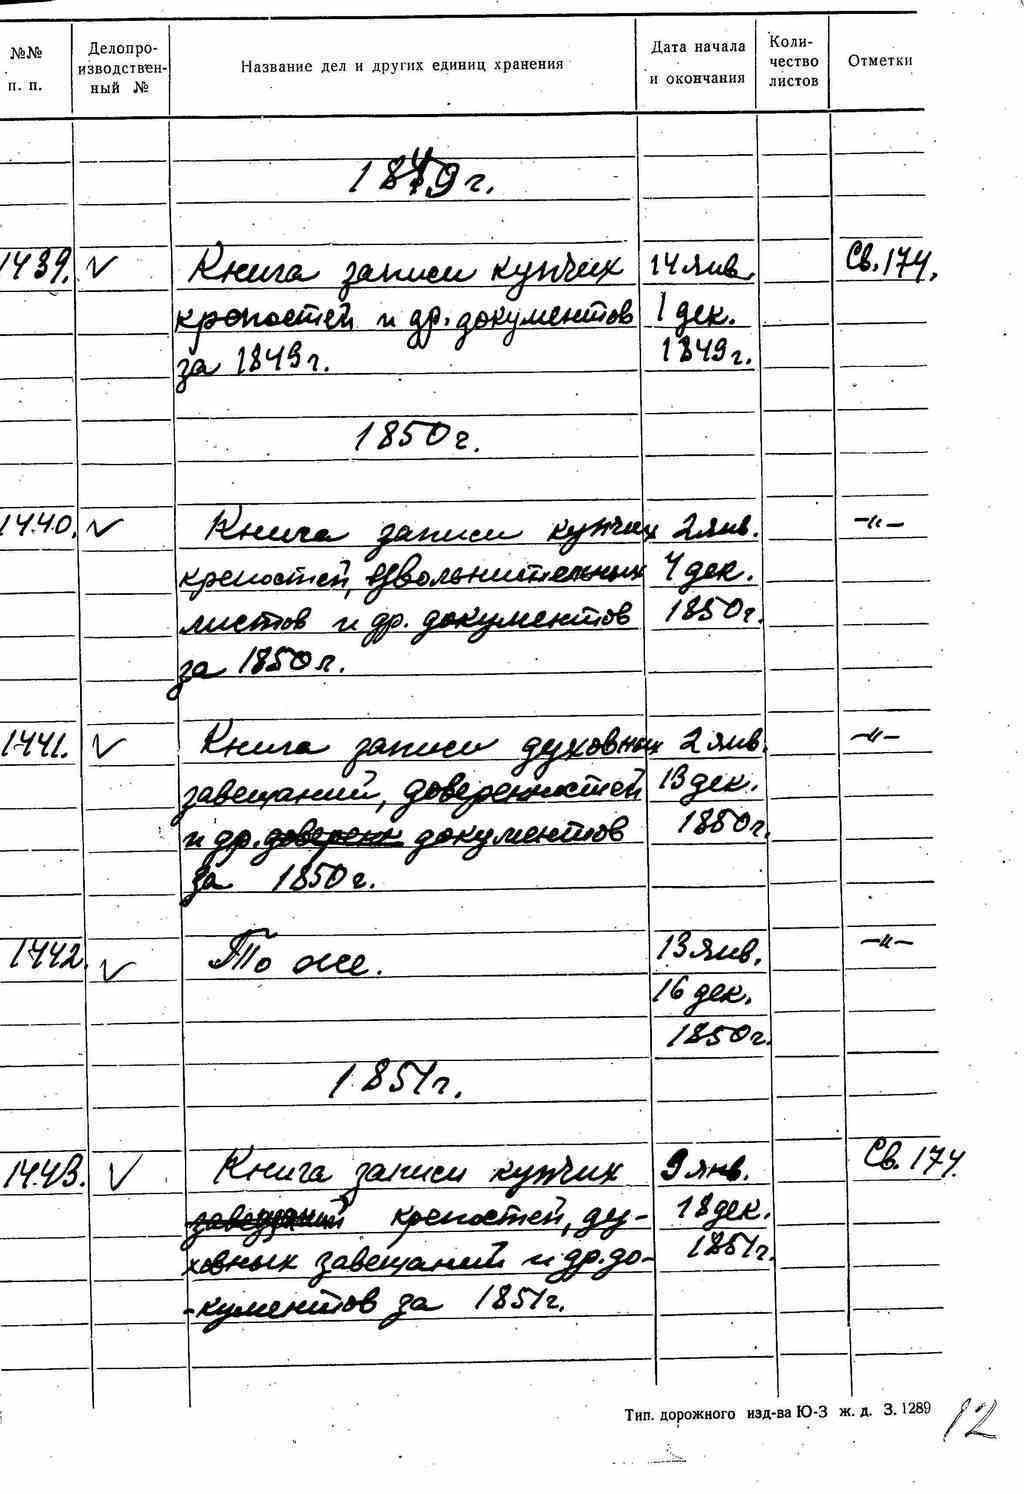 №№ п. п. Делопроизводственный № Название дел и других единиц хранения Дата начала и окончания Количество листов Отметки
1849 г.
1439. Книга записи купчих 14 янв. Св. 174.
крепостей и др. документов 1 дек.
за 1849 г. 1849 г.
1850 г.
1440. Книга записи купчих 2 янв. -"-
крепостей, увольнительных 4 дек.
листов и др. документов 1850 г.
за 1850 г.
1441. Книга записи духовных 2 янв. -"-
завещаний, доверенностей 13 дек.
и др. доверенн документов 1850 г.
за 1850 г.
1442. То же. 13 янв. -"-
16 дек.
1850 г.
1851 г.
1443. Книга записи купчих 9 янв. Св. 174.
завещаний крепостей, ду- 18 дек.
ховных завещаний и др. до- 1851 г.
-кументов за 1851 г.
Тип. дорожного изд-ва Ю-З ж. д. З. 1289
12